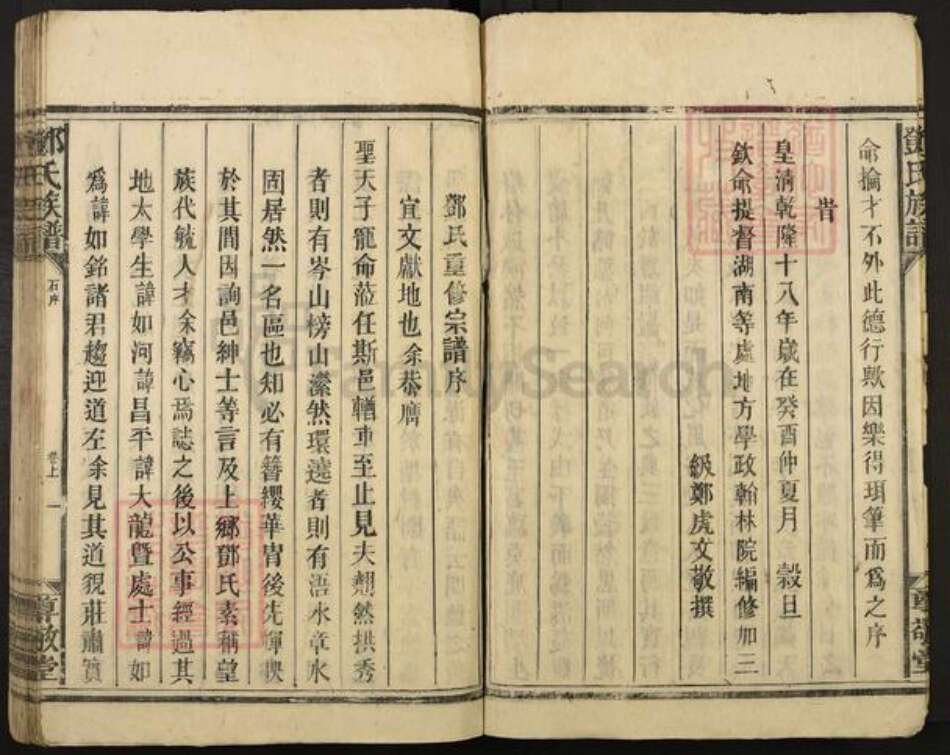 鄧氏族譜
俞掄才不外此德行歟因樂得珥筆而爲之序
旹
皇清乾隆十八年歲在癸酉仲夏月 穀旦
欽命提督湖南等處地方學政翰林院編修加三
級鄭虎文敬撰
鄧氏重修宗譜序
宜文獻地也余恭膺
聖天子寵命蒞任斯邑轊車至止見夫翹然拱秀
者則有岑山榜山瀠然環遶者則有浯水章水
固居然一名區也知必有簪纓華胄後先輝映
於其間因詢邑紳士等言及上鄉鄧氏素稱望
族代毓人才余竊心焉誌之後以公事經過其
地太學生諱如河諱昌平諱大龍暨處士諱如
爲諱如銘諸君趨迎道左余見其道貌莊肅實
鄧氏族譜
石序
卷上
一
尊敬堂
FamilySearch